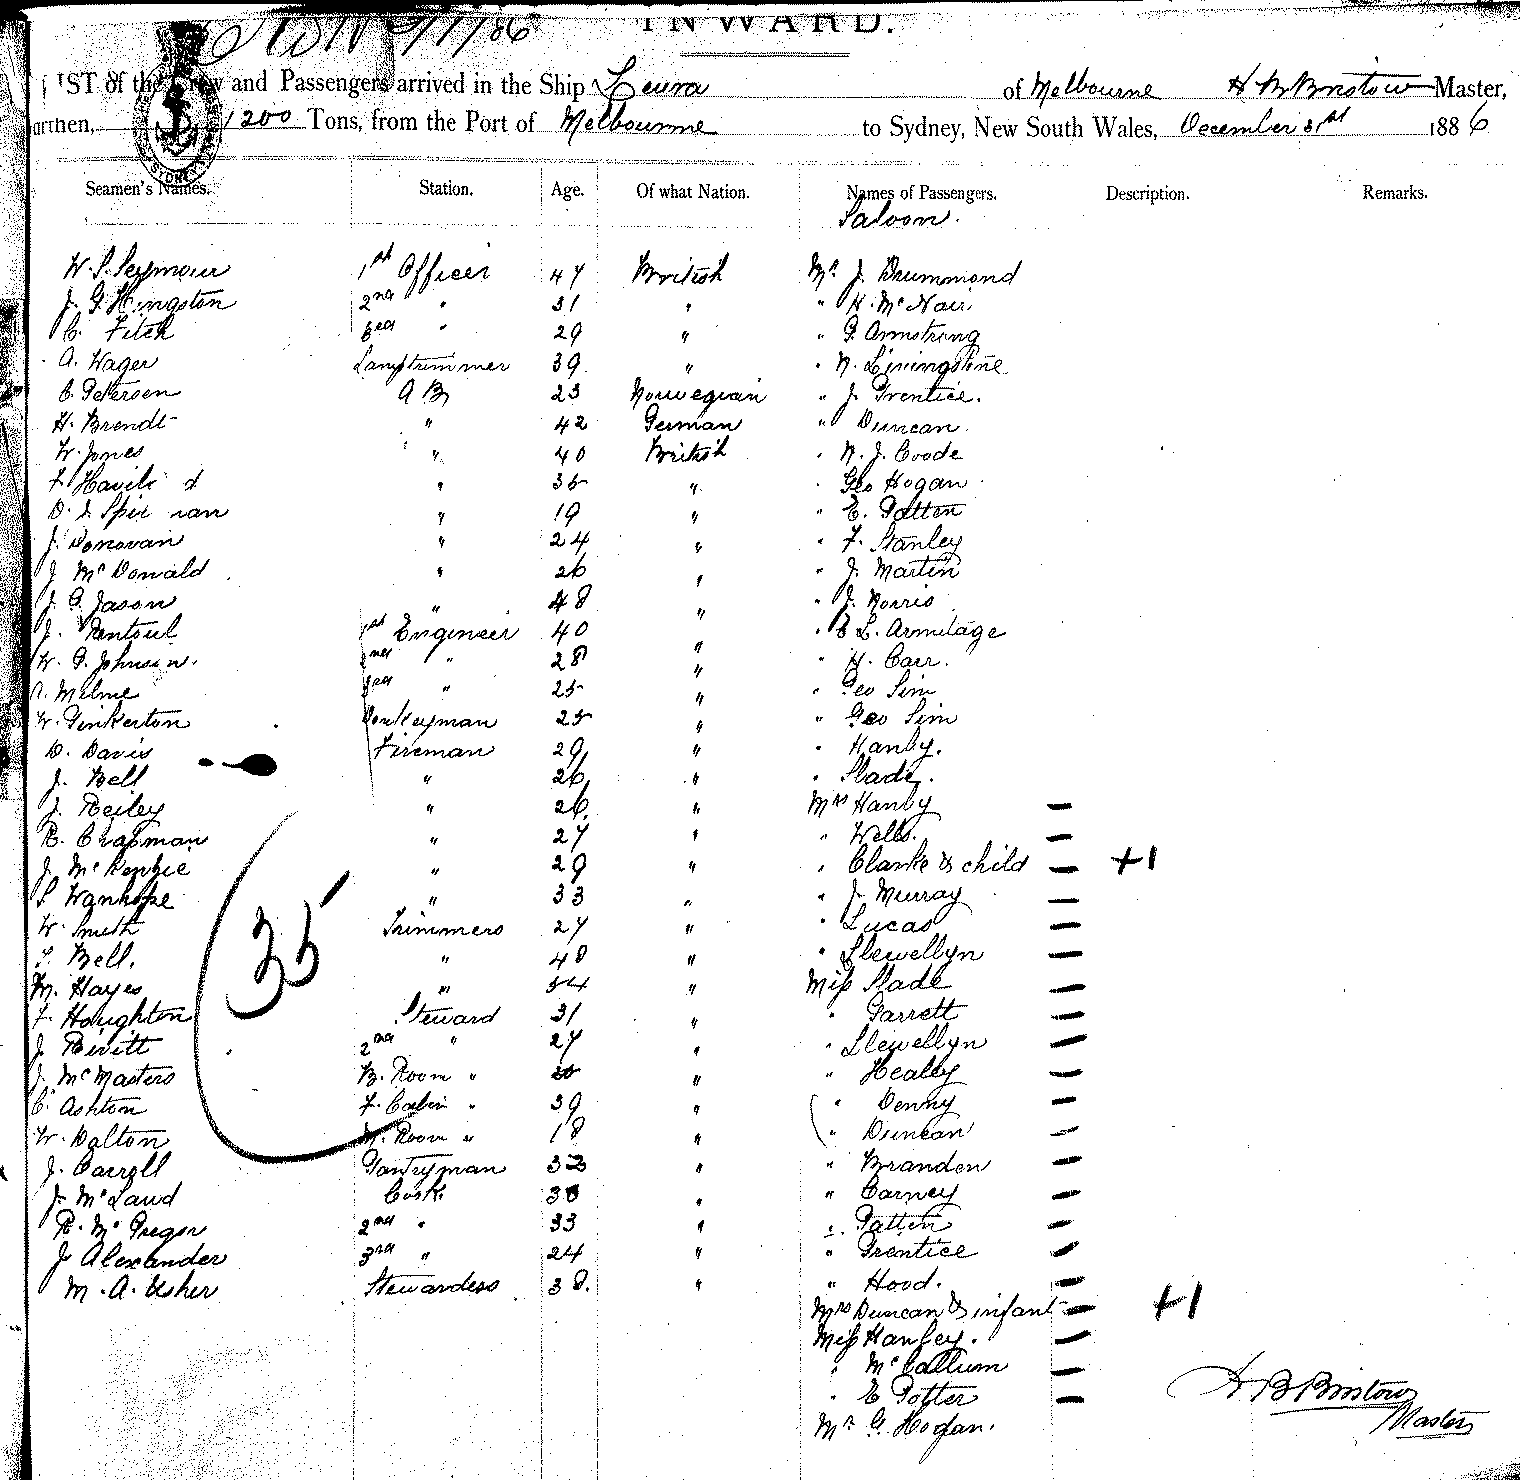 INWARD.
LIST of the Crew and Passengers arrived in the Ship Leura of Melbourne H B Bristow Master,
Burthen, 1200 Tons, from the Port of Melbourne to Sydney, New South Wales, December 31st 1886
Seamen's Names. Station. Age. Of what Nation. Names of Passengers. Description. Remarks.
Saloon.
W. S. Seymour 1st Officer 47 British Mr J. Drummond
J. G. Hingston 2nd " 31 " " H. McNair
C. Fitch 3rd " 29 " " G. Armstrong
A. Wager Lamptrimmer 39 " " N. Livingstone
C. Petersen AB 23 Norwegian " J. Prentice.
H. Brendt " 42 German " Duncan.
W. Jones " 40 British " N. J. Coode
F. " 35 " " Geo Hogan
D. " 19 " " E. Patten
J. Donovan " 24 " " F. Stanley
J. McDonald " 26 " " J. Martin
J. G. Jason " 48 " " J. Norris
J. Rentoul 1st Engineer 40 " " E L. Armitage
W. G. Johnson. 2nd " 28 " " H. Carr.
Milne 3rd " 25 " " Geo Sim
W. Pinkerton Donkeyman 25 " " Geo Sim
D. Davis Fireman 29 " " Hanby.
J. Bell " 26 " " Slade.
J. Reiley " 26 " Mrs Hanby —
R. Chapman " 27 " " Wells. —
J. McKenzie " 29 " " Clarke & child — +1
S Wanhope " 33 " " J. Murray —
W. Smith Trimmers 27 " " Lucas —
Bell. " 48 " " Llewellyn —
M. Hayes " 54 " Miss Slade —
F. Houghton Steward 31 " " Garrett —
J. Rivitt 2nd " 27 " " Llewellyn —
J. McMasters B. Room " " " Healey —
C. Ashton F. Cabin " 39 " " Denny —
W. Dalton M. Room " 18 " " Duncan —
J. Carroll Pantryman 32 " " Brandon —
J. McLaud Cook 38 " " Carney —
R. McGregor 2nd " 33 " " Patten —
J Alexander 3rd " 24 " " Prentice —
M. A. Usher Stewardess 38. " " Hood. —
35
Mrs Duncan & infant — +1
Miss Hanbey. —
" McCallum —
" E Potter —
Mr G. Hogan.
H B Bristow
Master